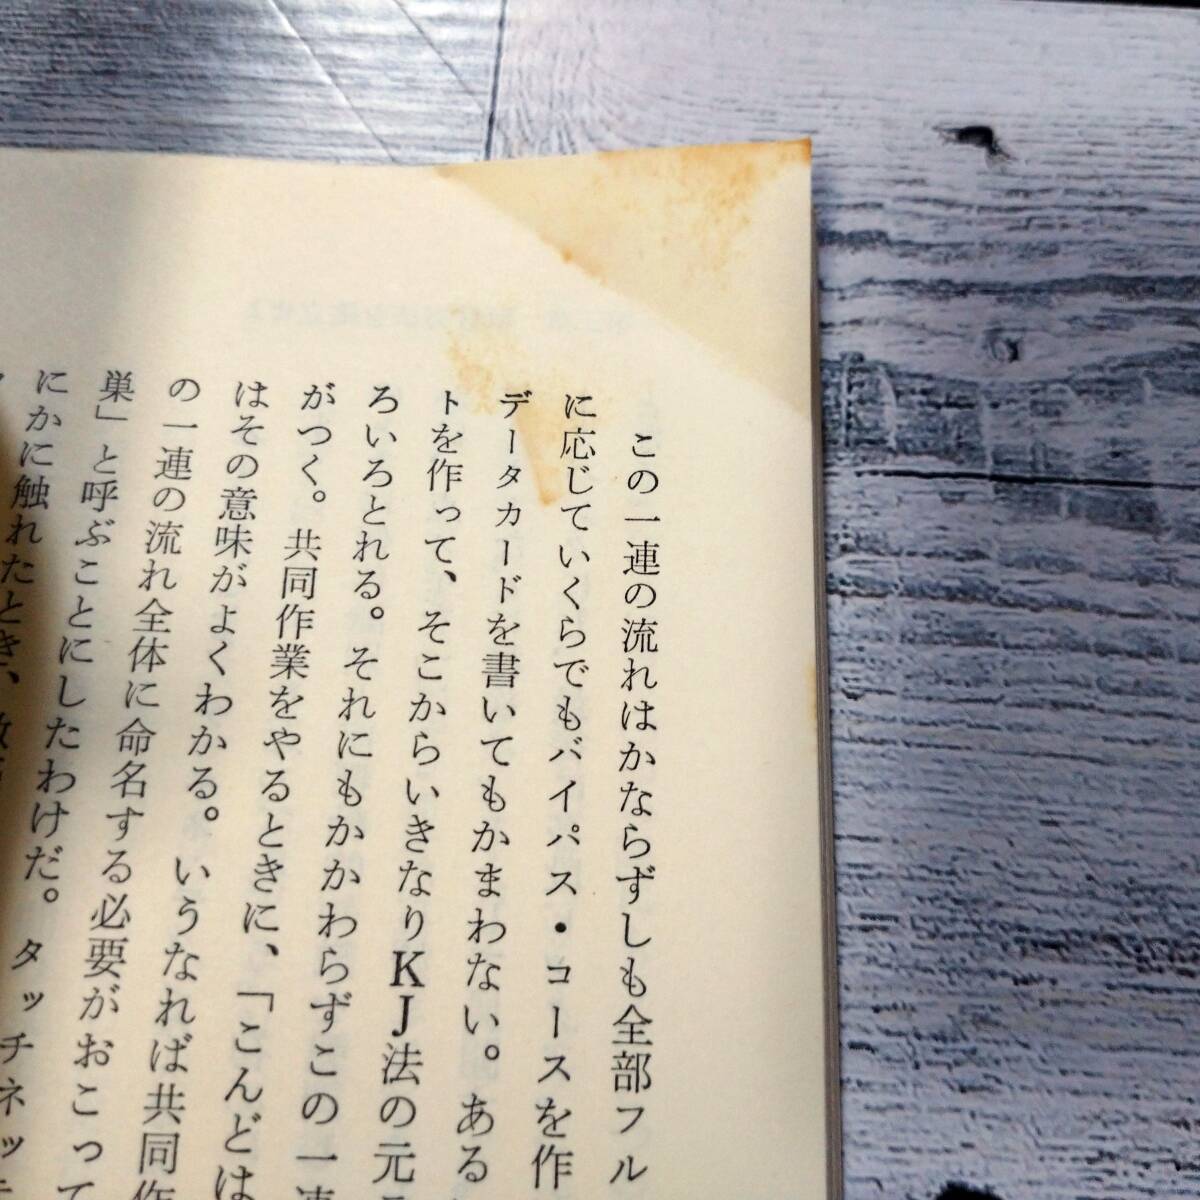 この一連の流れはかならずしも全部フル
に応じていくらでもバイパス・コースを作
データカードを書いてもかまわない。ある
トを作って、そこからいきなりKJ法の元
ろいろとれる。それにもかかわらずこの一連
がつく。共同作業をやるときに、「こんどは
はその意味がよくわかる。いうなれば共同作
の一連の流れ全体に命名する必要がおこって
巣」と呼ぶことにしたわけだ。タッチネッ
にかに触れたとき、